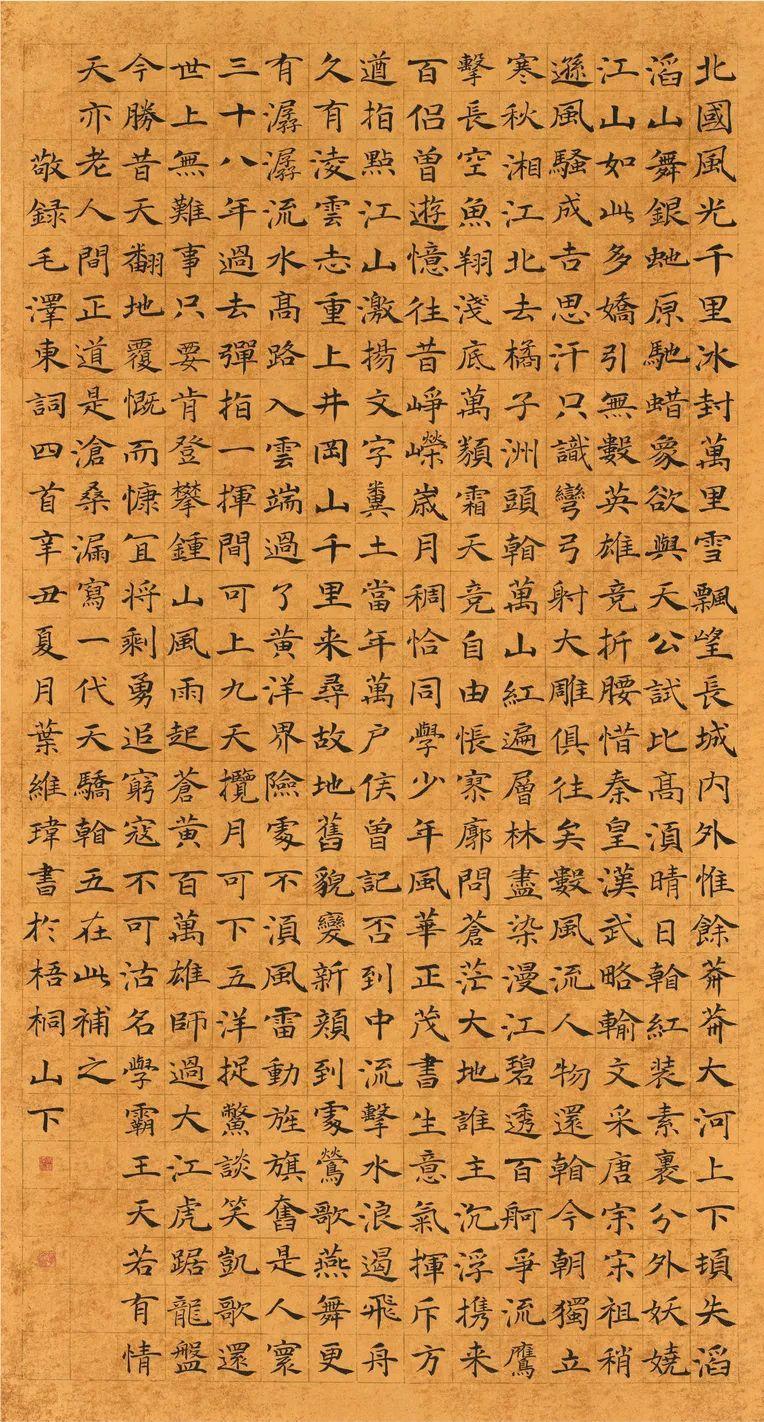 北國風光千里冰封萬里雪飄望長城内外惟餘莽莽大河上下頓失滔
滔山舞銀虵原馳蜡象欲與天公試比高湏晴日看紅装素裹分外妖嬈
江山如此多嬌引無數英雄竞折腰惜秦皇漢武略輸文采唐宗宋祖稍
遜風騷成吉思汗只識彎弓射大雕俱往矣數風流人物還看今朝獨立
寒秋湘江北去橘子洲頭看萬山紅遍層林盡染漫江碧透百舸爭流鷹
擊長空魚翔淺底萬類霜天竞自由悵寥廓問蒼茫大地誰主沉浮携来
百侣曾遊憶往昔崢嶸歲月稠恰同學少年風華正茂書生意氣揮斥方
遒指點江山激揚文字糞土當年萬户侯曾記否到中流擊水浪遏飛舟
久有淩雲志重上井岡山千里来尋故地舊貌變新顔到處鶯歌燕舞更
有潺潺流水高路入雲端過了黄洋界險處不湏風雷動旌旗奮是人寰
三十八年過去彈指一揮間可上九天攬月可下五洋捉鱉談笑凱歌還
世上無難事只要肯登攀鍾山風雨起蒼黄百萬雄師過大江虎踞龍盤
今勝昔天翻地覆慨而慷宜將剩勇追窮寇不可沽名學霸王天若有情
天亦老人間正道是滄桑漏寫一代天驕看五在此補之
敬録毛澤東詞四首辛丑夏月葉維瑋書於梧桐山下